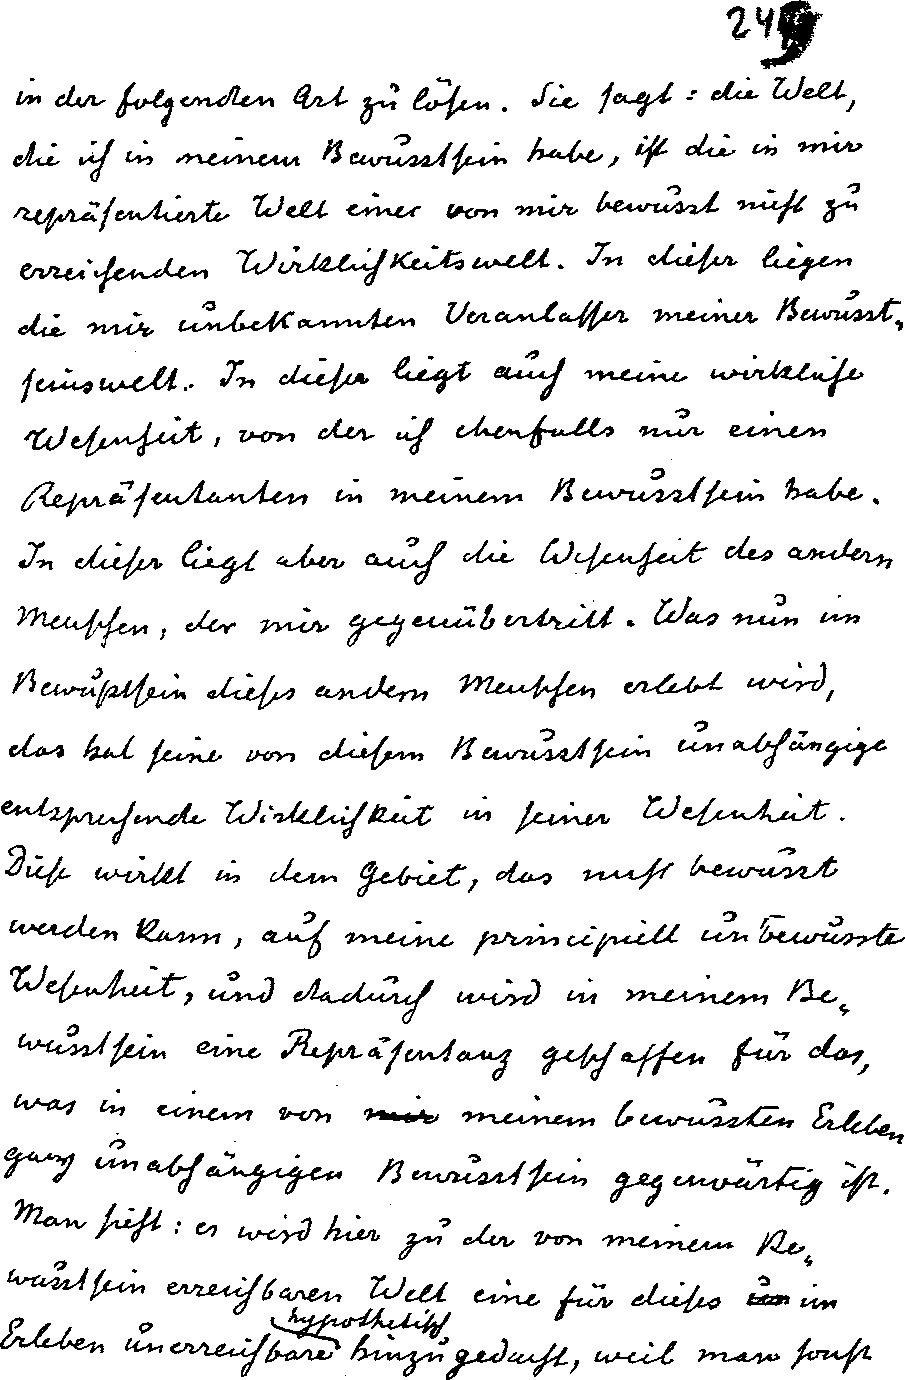 249
in der folgenden Art zu lösen. Sie sagt: die Welt,
die ich in meinem Bewusstsein habe, ist die in mir
repräsentierte Welt einer von mir bewusst nicht zu
erreichenden Wirklichkeitswelt. In dieser liegen
die mir unbekannten Veranlasser meiner Bewusst-
seinswelt. In dieser liegt auch meine wirkliche
Wesenheit, von der ich ebenfalls nur einen
Repräsentanten in meinem Bewusstsein habe.
In dieser liegt aber auch die Wesenheit des andern
Menschen, der mir gegenübertritt. Was nun im
Bewußtsein dieses andern Menschen erlebt wird,
das hat seine von diesem Bewusstsein unabhängige
entsprechende Wirklichkeit in seiner Wesenheit.
Diese wirkt in dem Gebiet, das nicht bewusst
werden kann, auf meine principiell unbewusste
Wesenheit, und dadurch wird in meinem Be-
wusstsein eine Repräsentanz geschaffen für das,
was in einem von mir meinem bewussten Erleben
ganz unabhängigen Bewusstsein gegenwärtig ist.
Man sieht: es wird hier zu der von meinem Be-
wusstsein erreichbaren Welt eine für dieses un im
hypothetisch
Erleben unerreichbare hinzugedacht, weil man sonst